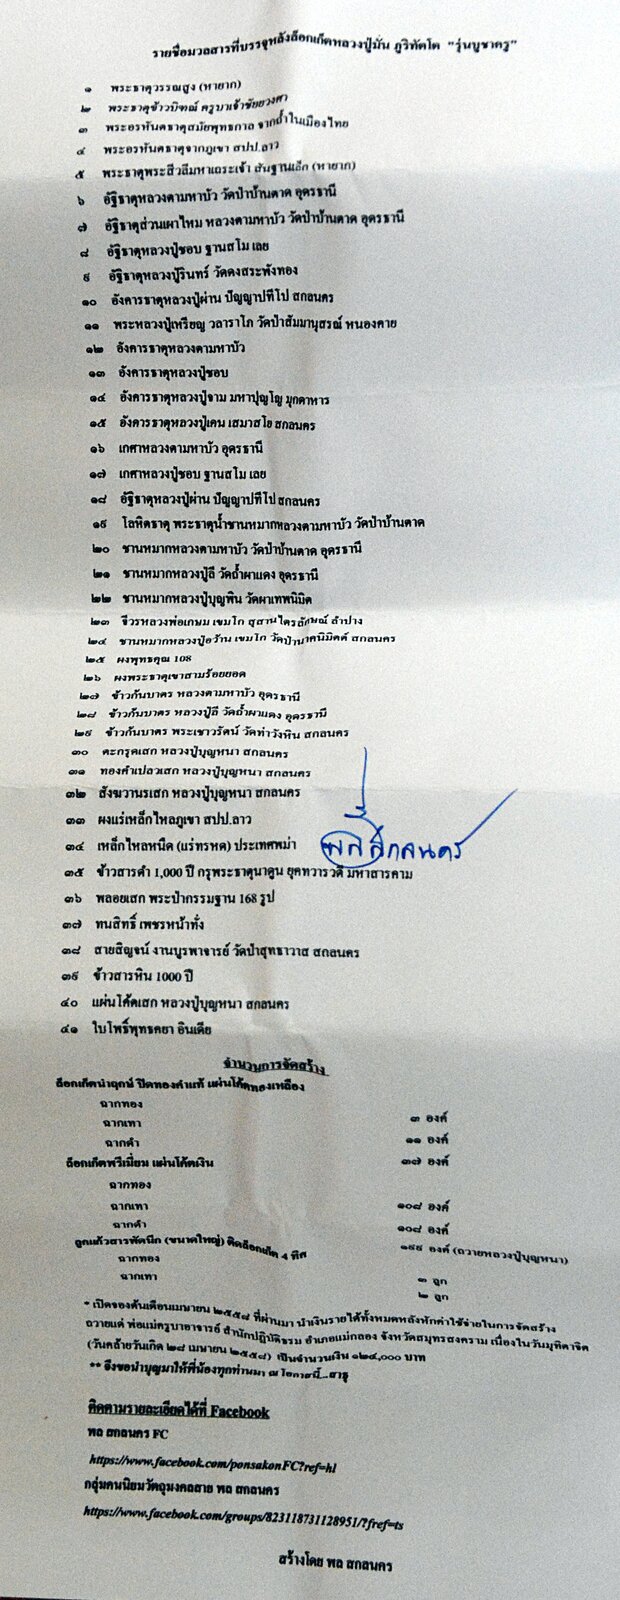 รายชื่อมวลสารที่บรรจุหลังล็อกเก็ตหลวงปู่มั่น ภูริทัตโต "รุ่นบูชาครู"
๑ พระธาตุวรรณสูง (หายาก)
๒ พระธาตุข้าวบิณฑ์ ครูบาเจ้าชัยยวงศา
๓ พระอรหันตธาตุสมัยพุทธกาล จากถ้ำในเมืองไทย
๔ พระอรหันตธาตุจากภูเขา สปป.ลาว
๕ พระธาตุพระสีวลีมหาเถระเจ้า สันฐานเล็ก (หายาก)
๖ อัฐิธาตุหลวงตามหาบัว วัดป่าบ้านตาด อุดรธานี
๗ อัฐิธาตุส่วนเผาไหม หลวงตามหาบัว วัดป่าบ้านตาด อุดรธานี
๘ อัฐิธาตุหลวงปู่ชอบ ฐานสโม เลย
๙ อัฐิธาตุหลวงปู่รินทร์ วัดดงสระพังทอง
๑๐ อังคารธาตุหลวงปู่ผ่าน ปัญญาปทีโป สกลนคร
๑๑ พระหลวงปู่เหรียญ วลาราโภ วัดป่าสัมมานุสรณ์ หนองคาย
๑๒ อังคารธาตุหลวงตามหาบัว
๑๓ อังคารธาตุหลวงปู่ชอบ
๑๔ อังคารธาตุหลวงปู่จาม มหาปุญโญ มุกดาหาร
๑๕ อังคารธาตุหลวงปู่เคน เสมาสโย สกลนคร
๑๖ เกศาหลวงตามหาบัว อุดรธานี
๑๗ เกศาหลวงปู่ชอบ ฐานสโม เลย
๑๘ อัฐิธาตุหลวงปู่ผ่าน ปัญญาปทีโป สกลนคร
๑๙ โลหิตธาตุ พระธาตุน้ำชานหมากหลวงตามหาบัว วัดป่าบ้านตาด
๒๐ ชานหมากหลวงตามหาบัว วัดป่าบ้านตาด อุดรธานี
๒๑ ชานหมากหลวงปู่ลี วัดถ้ำผาแดง อุดรธานี
๒๒ ชานหมากหลวงปู่บุญพิน วัดผาเทพนิมิต
๒๓ จีวรหลวงพ่อเกษม เขมโก สุสานไตรลักษณ์ ลำปาง
๒๔ ชานหมากหลวงปู่อว้าน เขมโก วัดป่านาคนิมิตต์ สกลนคร
๒๕ ผงพุทธคุณ 108
๒๖ ผงพระธาตุเขาสามร้อยยอด
๒๗ ข้าวก้นบาตร หลวงตามหาบัว อุดรธานี
๒๘ ข้าวก้นบาตร หลวงปู่ลี วัดถ้ำผาแดง อุดรธานี
๒๙ ข้าวก้นบาตร พระเชาวรัตน์ วัดท่าวังหิน สกลนคร
๓๐ ตะกรุดเสก หลวงปู่บุญหนา สกลนคร
๓๑ ทองคำเปลวเสก หลวงปู่บุญหนา สกลนคร
๓๒ สังฆวานรเสก หลวงปู่บุญหนา สกลนคร
๓๓ ผงแร่เหล็กไหลภูเขา สปป.ลาว
๓๔ เหล็กไหลหนืด (แร่ทรหด) ประเทศพม่า
พล สกลนคร
๓๕ ข้าวสารดำ 1,000 ปี กรุพระธาตุนาดูน ยุคทวารวดี มหาสารคาม
๓๖ พลอยเสก พระป่ากรรมฐาน 168 รูป
๓๗ ทนสิทธิ์ เพชรหน้าทั่ง
๓๘ สายสิญจน์ งานบูรพาจารย์ วัดป่าสุทธาวาส สกลนคร
๓๙ ข้าวสารหิน 1000 ปี
๔๐ แผ่นโค้ดเสก หลวงปู่บุญหนา สกลนคร
๔๑ ใบโพธิ์พุทธคยา อินเดีย
จำนวนการจัดสร้าง
ล็อกเก็ตนำฤกษ์ ปิดทองคำแท้ แผ่นโค้ดทองเหลือง
ฉากทอง ๓ องค์
ฉากเทา ๑๑ องค์
ฉากดำ ๓๗ องค์
ล็อกเก็ตพรีเมี่ยม แผ่นโค้ดเงิน
ฉากทอง ๑๐๘ องค์
ฉากเทา ๑๐๘ องค์
ฉากดำ ๑๙๙ องค์ (ถวายหลวงปู่บุญหนา)
ลูกแก้วสารพัดนึก (ขนาดใหญ่) ติดล็อกเก็ต 4 ทิศ
ฉากทอง ๓ ลูก
ฉากเทา ๒ ลูก
* เปิดจองต้นเดือนเมษายน ๒๕๕๘ ที่ผ่านมา นำเงินรายได้ทั้งหมดหลังหักค่าใช้จ่ายในการจัดสร้าง
ถวายแด่ พ่อแม่ครูบาอาจารย์ สำนักปฏิบัติธรรม อำเภอแม่กลอง จังหวัดสมุทรสงคราม เนื่องในวันมุทิตาจิต
(วันคล้ายวันเกิด ๒๘ เมษายน ๒๕๕๘) เป็นจำนวนเงิน ๑๒๔,๐๐๐ บาท
** จึงขอนำบุญมาให้พี่น้องทุกท่านมา ณ โอกาสนี้...สาธุ
ติดตามรายละเอียดได้ที่ Facebook
พล สกลนคร FC
https://www.facebook.com/ponsakonFC?ref=hl
กลุ่มคนนิยมวัตถุมงคลสาย พล สกลนคร
https://www.facebook.com/groups/823118731128951/?fref=ts
สร้างโดย พล สกลนคร